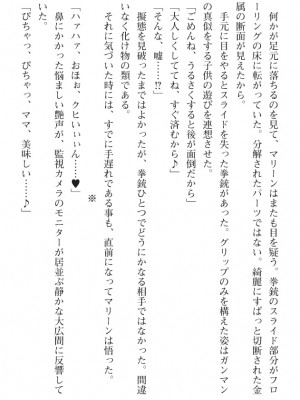 何かが足元に落ちるのを見て、マリーンはまたも目を疑う。拳銃のスライド部分がフロ
ーリングの床に転がっていた。分解されたパーツではない。綺麗にすぱっと切断された金
属の断面が見えたから。
手元に目をやるとスライドを失った拳銃があった。グリップのみを構えた姿はガンマン
の真似をする子供の遊びを連想させた。
「ごめんね、うるさくすると後が面倒だから」
「そんな、嘘……!?」
「大人しくしててね、すぐ済むから♪」
擬態を見破ったまではよかったが、拳銃ひとつでどうにかなる相手ではなかった。間違
いなく化け物の類である。
それに気づいた時には、すでに手遅れである事も、直前になってマリーンは悟った。
※
「ハァハァ、おほぉ、クヒいぃぃん……♥」
鼻にかかった悩ましい艶声が、監視カメラのモニターが居並ぶ静かな大広間に反響して
いた。
「ぴちゃっ、ぴちゃっ、ママ、美味しい……♪」